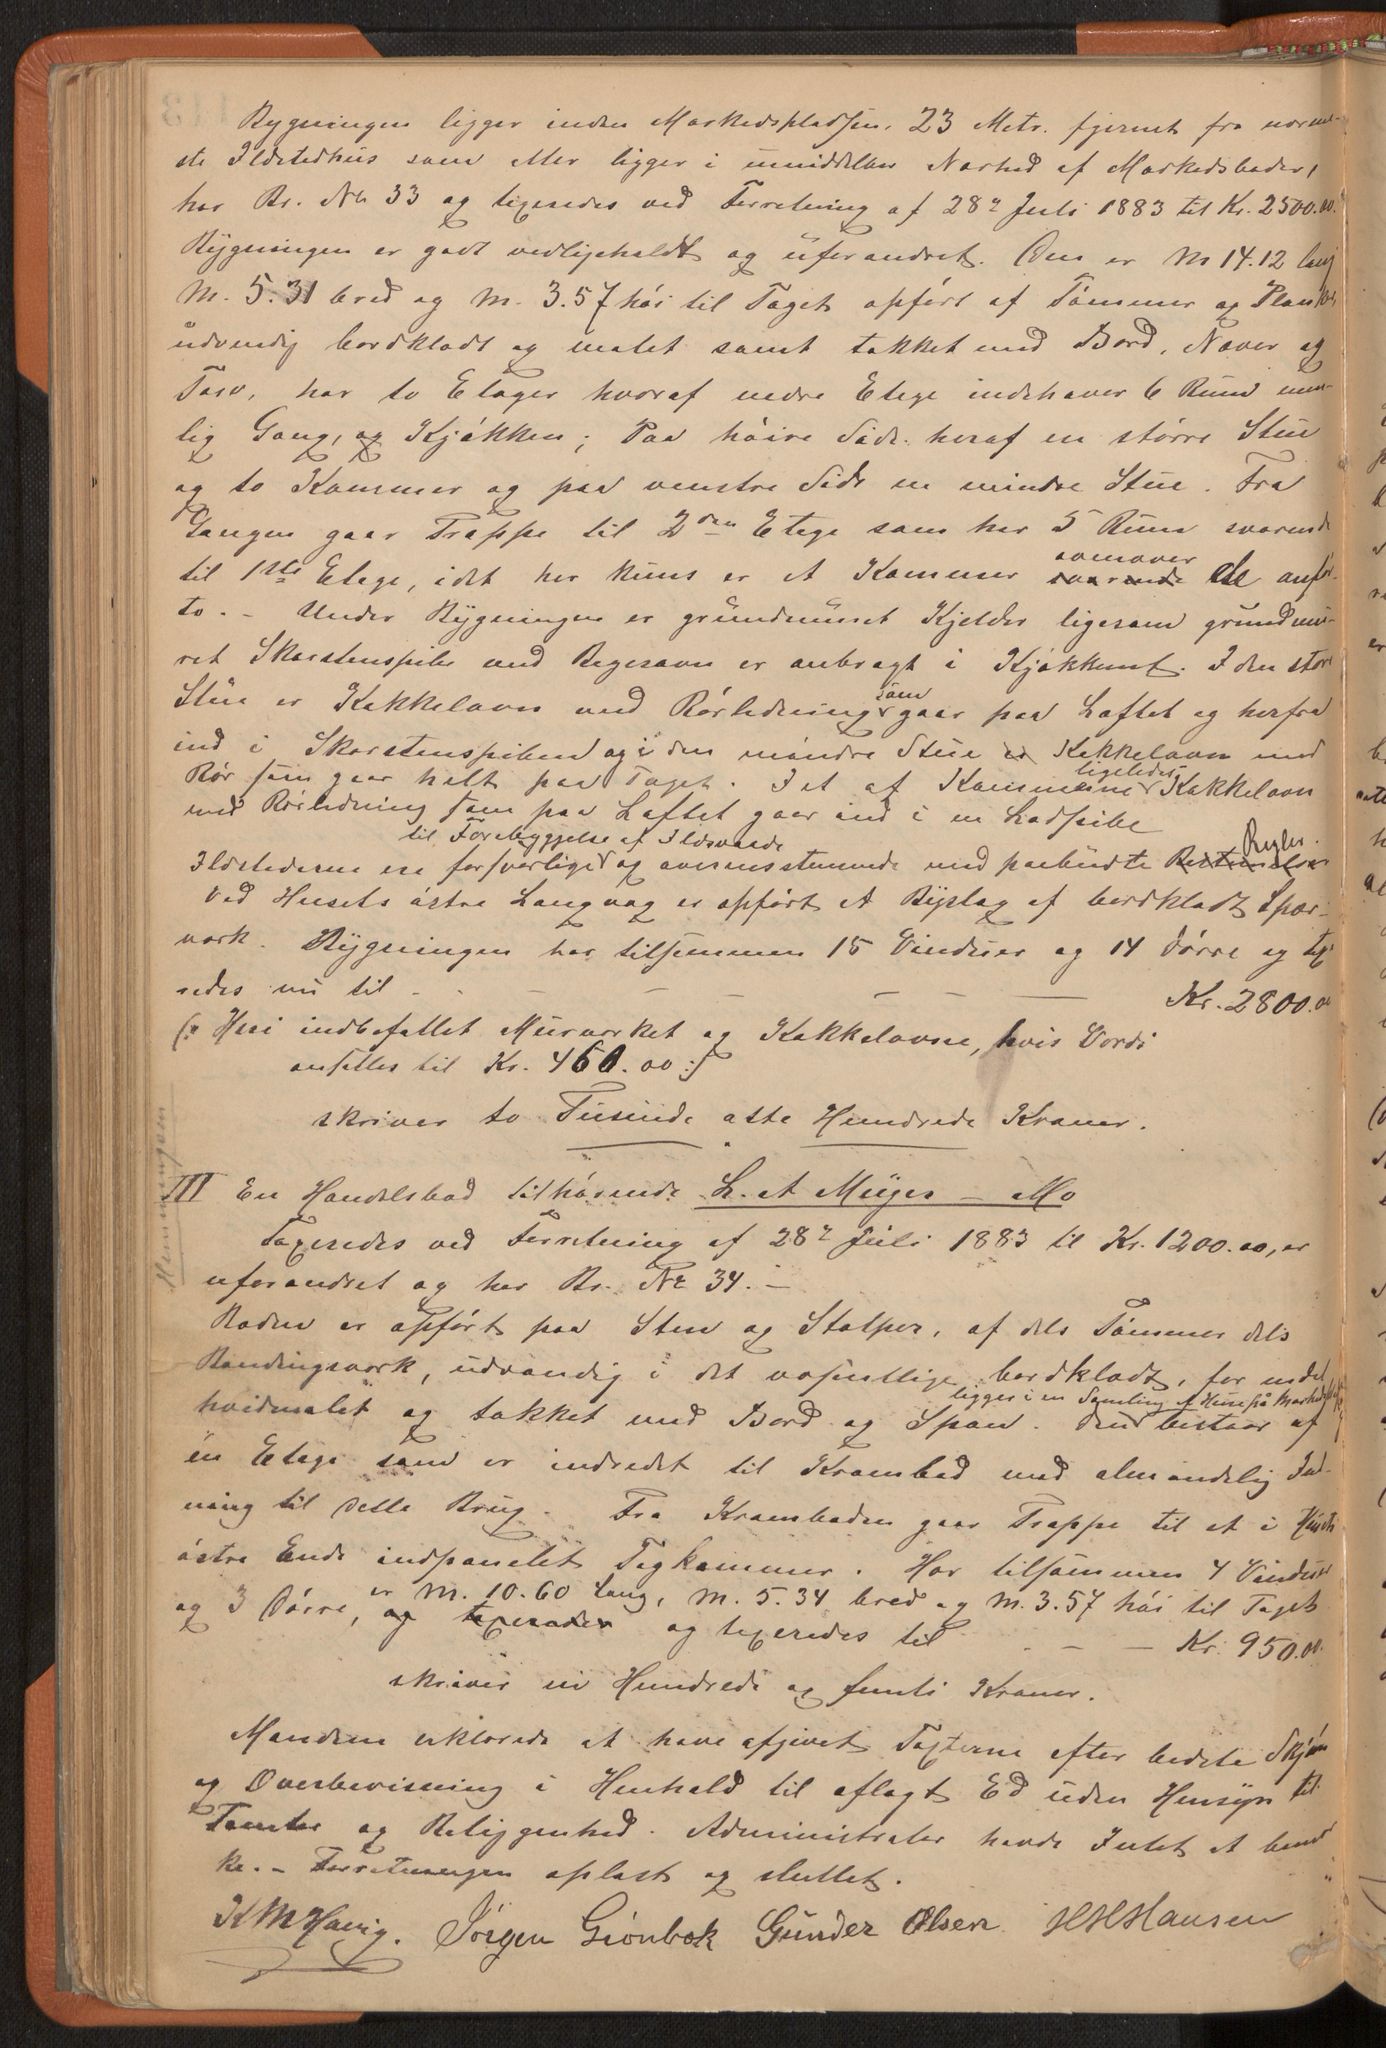 Bygningen ligger inden Markedspladsen, 23 Metr. fjernet fra nærme-
ste Ildstedhus som eller ligger i umiddelbar Nærhed af Markedsboder,
har Br. No 33 og taxeredes ved Forretning af 28de Juli 1883 til Kr. 2500.00.
Bygningen er godt vedligeholdt og uforandret. Den er M 14.12 lang
M. 5.31 bred og M. 3.57 høi til Taget opført af Tømmer og Planker
udvendig bordklædt og malet samt tækket med Bord, Næver og
Torv, har to Etager hvoraf nedre Etage indehaver 6 Rum nem-
lig Gang, og Kjøkken; Paa høire Side heraf en større Stue
og to Kammer og paa venstre Side en mindre Stue. Fra
Gangen gaar Trappe til 2den Etage som har 5 Rum svarende
til 1ste Etage, idet her kuns er et Kammer svarende ovenover de anfør-
te. - Under Bygningen er grundmuret Kjelder ligesom grundmu-
ret Skorstenspibe med Bageravn er anbragt i Kjøkkenet. I den store
Stue er Kakkelovn med Rørledning som gaar paa Loftet og herfra
ind i Skorstenspiben og i den mindre Stue er Kakkelovn med
Rør som gaar helt paa Taget. I et af Kammerne ligeledes Kakkelovn
med Rørledning som paa Loftet gaar ind i en Ladpibe
til Forebyggelse af Ildsvaade
Ildstederne ere forsvarlige og overensstemmende med paabudte Regler.
Ved Husets østre Langvæg er opført et Bislag af bordklædt Spær-
værk. Bygningen har tilsammen 15 Vinduer og 14 Dørre og taxe-
redes nu til - - - - - - Kr. 2800.00
(: Heri indbefattet Murværket og Kakkelovne, hvis Værdi
ansættes til Kr. 450.00 :)
skriver to Tusinde otte Hundrede Kroner.
Hemmingsen
III En Handelsbod tilhørende L. A Meyer - Mo
Taxeredes ved Forretning af 28de Juli 1883 til Kr. 1200.00, er
uforandret og har Br. No 34. -
Boden er opført paa Sten og Stolper, af dels Tømmer dels
Bindingsværk, udvændig i det væsentlige bordklædt, for endel
ligger i en Samling af Huse på Markedspladsen
hvidmalet og tækket med Bord og Spaan. Den bestaar af
én Etage som er indredet til Krambod med almindelig Ind-
ning til dette Brug. Fra Kramboden gaar Trappe til et i Husets
østre Ende indpanelet Tagkammer. Har tilsammen 4 Vinduer
og 3 Dørre, er M. 10.60 lang, M. 5.34 bred og M. 3.57 høi til Taget
og taxeredes og taxeredes til - - - Kr. 950.00.
skriver ni Hundrede og femti Kroner.
Mændene erklærede at have afgivet Taxterne efter bedste Skjøn
og Overbevisning i Henhold til aflagt Ed uden Hensyn til
Tomter og Beliggenhed. Administrator havde Intet at bemær-
ke. - Forretningen oplæst og sluttet.
K M Havig. Jørgen Grønbæk Gunder Olsen H H Hansen